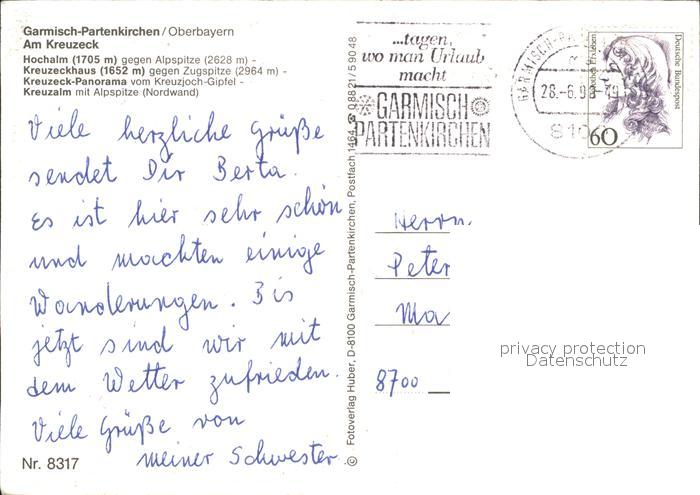 Garmisch-Partenkirchen / Oberbayern
Am Kreuzeck
Hochalm (1705 m) gegen Alpspitze (2628 m) -
Kreuzeckhaus (1652 m) gegen Zugspitze (2964 m) -
Kreuzeck-Panorama vom Kreuzjoch-Gipfel -
Kreuzalm mit Alpspitze (Nordwand)
Viele herzliche Grüße
sendet Dir Berta.
Es ist hier sehr schön
und machten einige
Wanderungen. Bis
jetzt sind wir mit
dem Wetter zufrieden.
Viele Grüße von
meiner Schwester
Nr. 8317
© Fotoverlag Huber, D-8100 Garmisch-Partenkirchen, Postfach 1464, ☎ 08821/59048
...tagen,
wo man Urlaub
macht
GARMISCH
PARTENKIRCHEN
28.-6.9
810
Deutsche Bundespost
60
Herrn
Peter
Ma
8700
privacy protection
Datenschutz